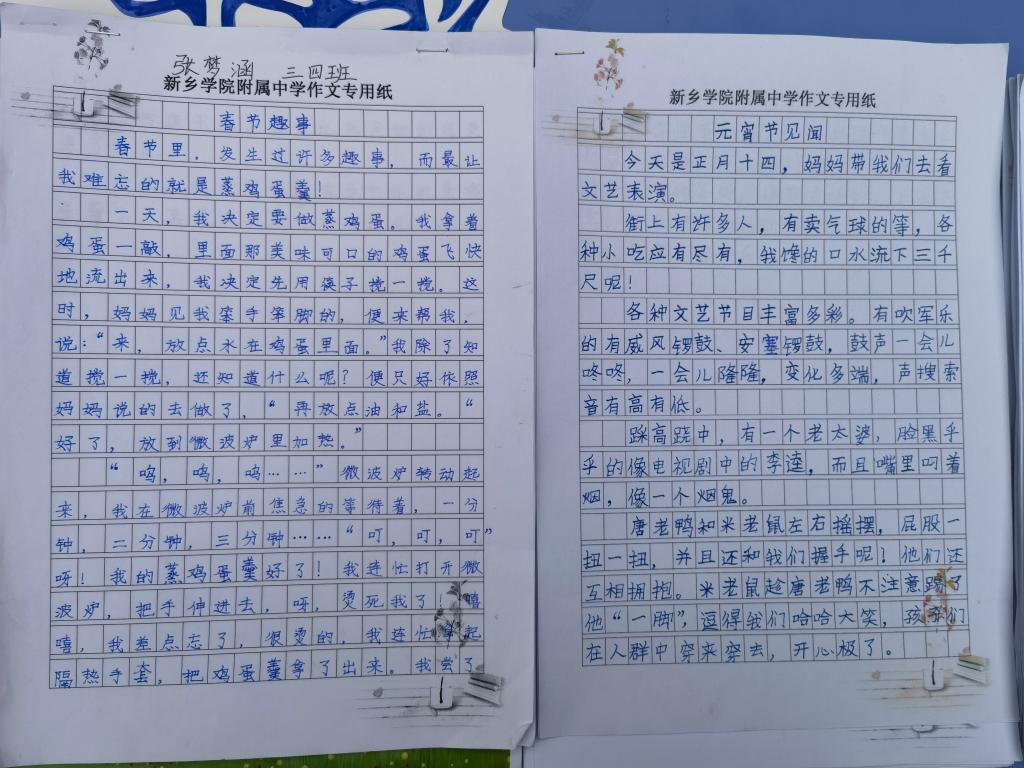 张梦涵 三四班
新乡学院附属中学作文专用纸
春节趣事
春节里，发生过许多趣事，而最让
我难忘的就是蒸鸡蛋羹！
一天，我决定要做蒸鸡蛋。我拿着
鸡蛋一敲，里面那美味可口的鸡蛋飞快
地流出来，我决定先用筷子搅一搅。这
时，妈妈见我笨手笨脚的，便来帮我，
说：“来，放点水在鸡蛋里面。”我除了知
道搅一搅，还知道什么呢？便只好依照
妈妈说的去做了，“再放点油和盐。“
好了，放到微波炉里加热。”
“呜，呜，呜……”微波炉转动起
来，我在微波炉前焦急的等待着，一分
钟，二分钟，三分钟……“叮，叮，叮”
呀！我的蒸鸡蛋羹好了！我连忙打开微
波炉，把手伸进去，呀，烫死我了！嘻
嘻，我差点忘了，很烫的，我连忙拿起
隔热手套，把鸡蛋羹拿了出来。我尝了
新乡学院附属中学作文专用纸
元宵节见闻
今天是正月十四，妈妈带我们去看
文艺表演。
街上有许多人，有卖气球的等，各
种小吃应有尽有，我馋的口水流下三千
尺呢！
各种文艺节目丰富多彩。有吹军乐
的有威风锣鼓、安塞锣鼓，鼓声一会儿
咚咚，一会儿隆隆，变化多端，声搜索
音有高有低。
踩高跷中，有一个老太婆，脸黑乎
乎的像电视剧中的李逵，而且嘴里叼着
烟，像一个烟鬼。
唐老鸭和米老鼠左右摇摆，屁股一
扭一扭，并且还和我们握手呢！他们还
互相拥抱。米老鼠趁唐老鸭不注意踢了
他“一脚”，逗得我们哈哈大笑，孩子们
在人群中穿来穿去，开心极了。